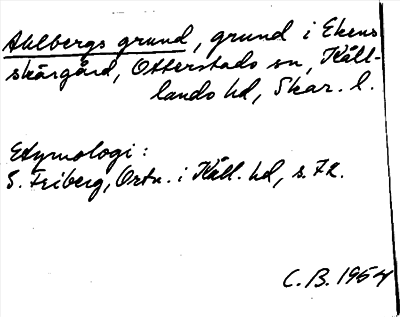 Ahlbergs grund, grund i Ekens
skärgård, Otterstads sn, Kål-
lands hd, Skar. l.
Etymologi:
S. Friberg, Ortn. i Kåll. hd, s. 72.
C.B. 1964